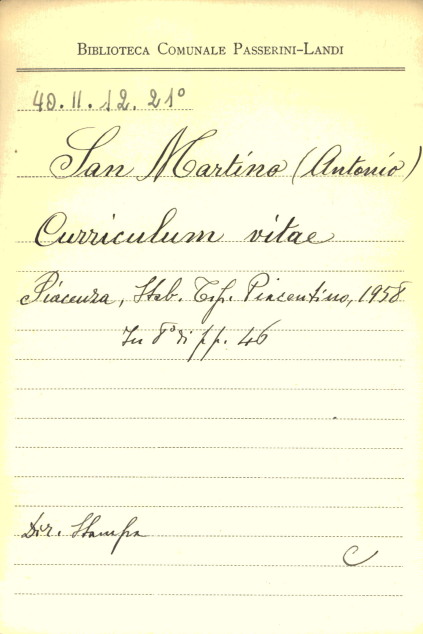 BIBLIOTECA COMUNALE PASSERINI-LANDI
40.II.12.21°
San Martino (Antonio)
Curriculum vitae
Piacenza, Stab. Tip. Piacentino, 1958
In 8° di pp. 46
Dir. Stampa
C